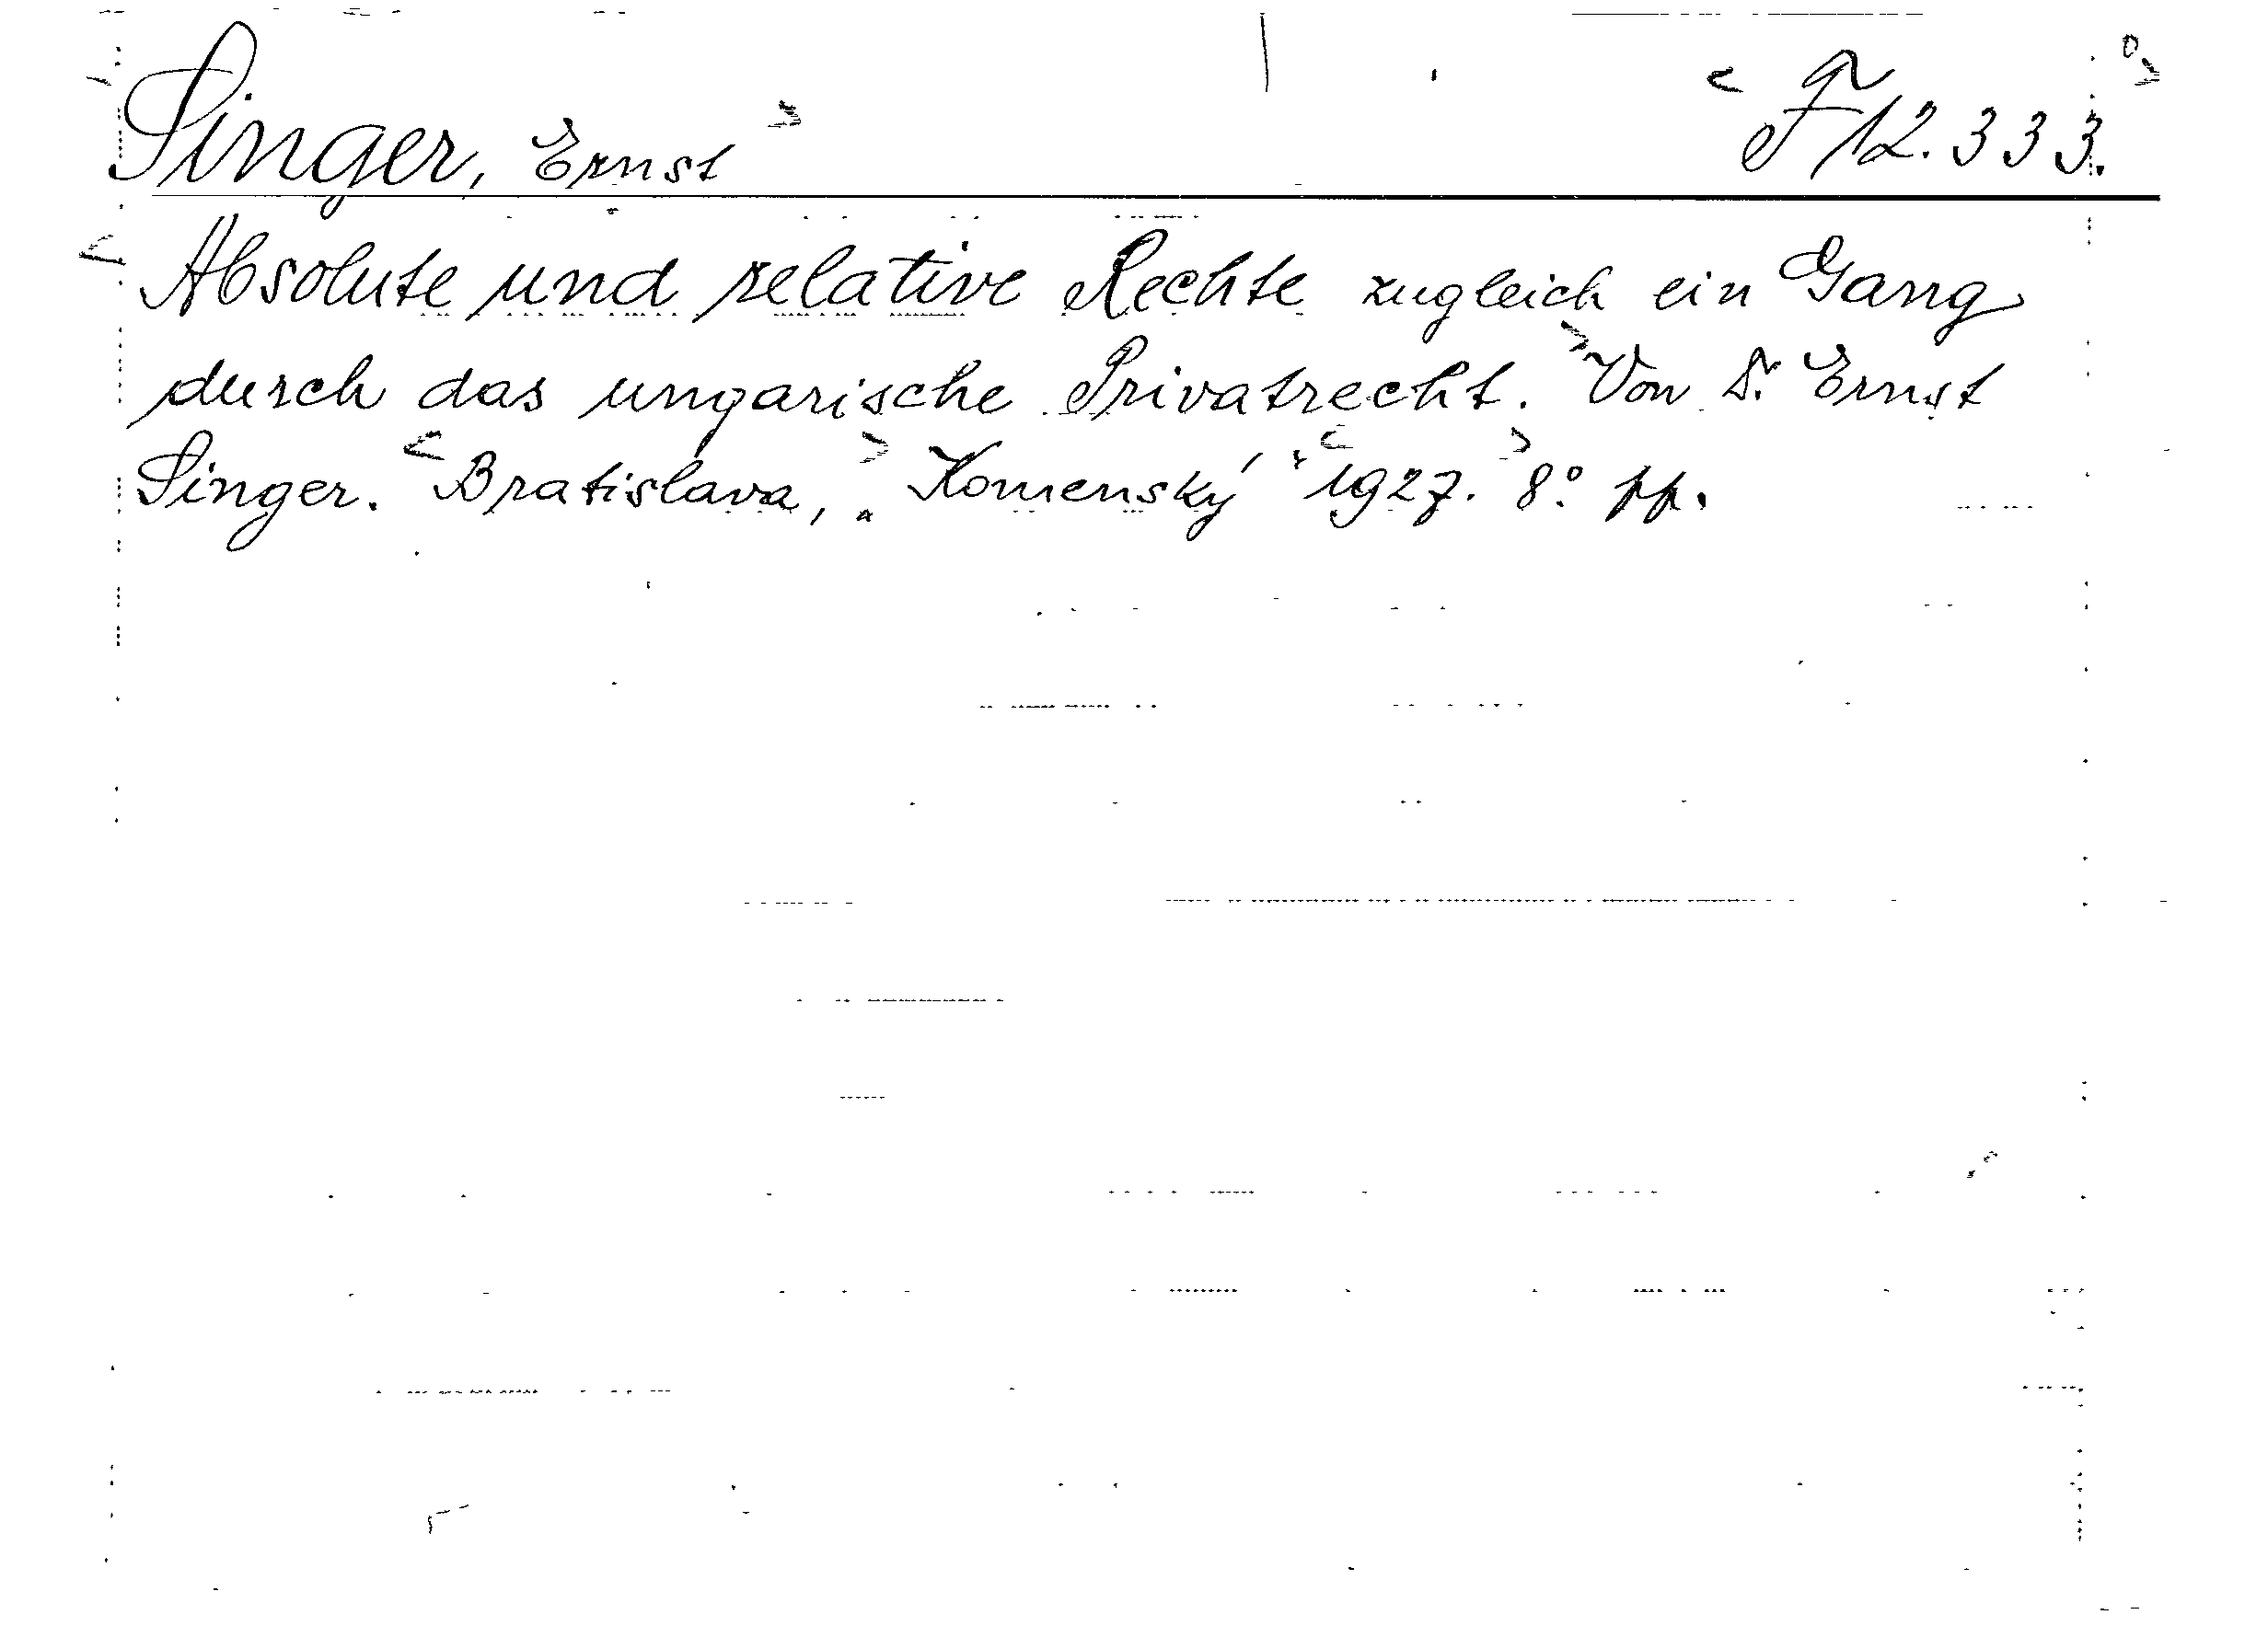 Singer, Ernst F 12.333.
Absolute und relative Rechte zugleich ein Gang
durch das ungarische Privatrecht. Von Dr. Ernst
Singer. Bratislava, „Komenský" 1927. 8° pp.